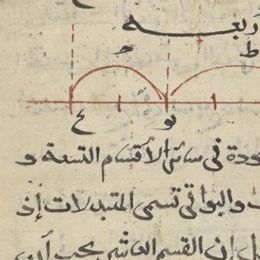 ربعه
ط
ح
ع
نو
ودة في سائر الأقسام التسعة و
والبواقي تسمى المتبدلات إذ
إن القسم العاشر يجب أن